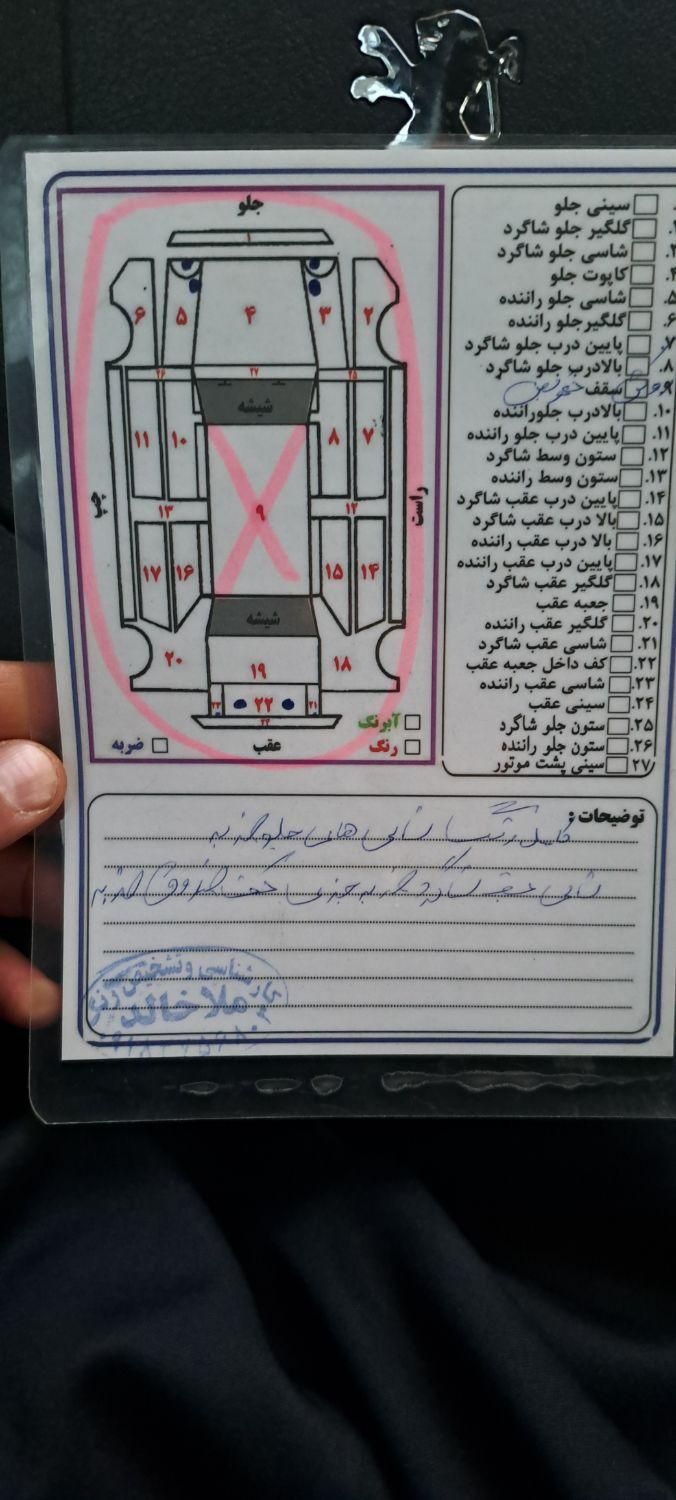 جلو
۱
۶
۵
۴
۳
۲
۲۶
۲۷
۲۵
شیشه
۱۱
۱۰
۸
۷
چپ
۹
راست
۱۳
۱۲
۱۷
۱۶
۱۵
۱۴
شیشه
۲۰
۱۹
۱۸
۲۳
۲۲
۲۱
۲۴
آبرنگ
رنگ
ضربه
عقب
سینی جلو
گلگیر جلو شاگرد
شاسی جلو شاگرد
کاپوت جلو
۵. شاسی جلو راننده
۶. گلگیرجلو راننده
۷. پایین درب جلو شاگرد
۸. بالادرب جلو شاگرد
۹. سقف
۱۰. بالادرب جلوراننده
۱۱. پایین درب جلو راننده
۱۲. ستون وسط شاگرد
۱۳. ستون وسط راننده
۱۴. پایین درب عقب شاگرد
۱۵. بالا درب عقب شاگرد
۱۶. بالا درب عقب راننده
۱۷. پایین درب عقب راننده
۱۸. گلگیر عقب شاگرد
۱۹. جعبه عقب
۲۰. گلگیر عقب راننده
۲۱. شاسی عقب شاگرد
۲۲. کف داخل جعبه عقب
۲۳. شاسی عقب راننده
۲۴. سینی عقب
۲۵. ستون جلو شاگرد
۲۶. ستون جلو راننده
۲۷ سینی پشت موتور
توضیحات:
جلو ضربه
عقب شاگرد ضربه جزئی کف صندوق ضربه
کارشناسی و تشخیص رنگ
ملا خالد